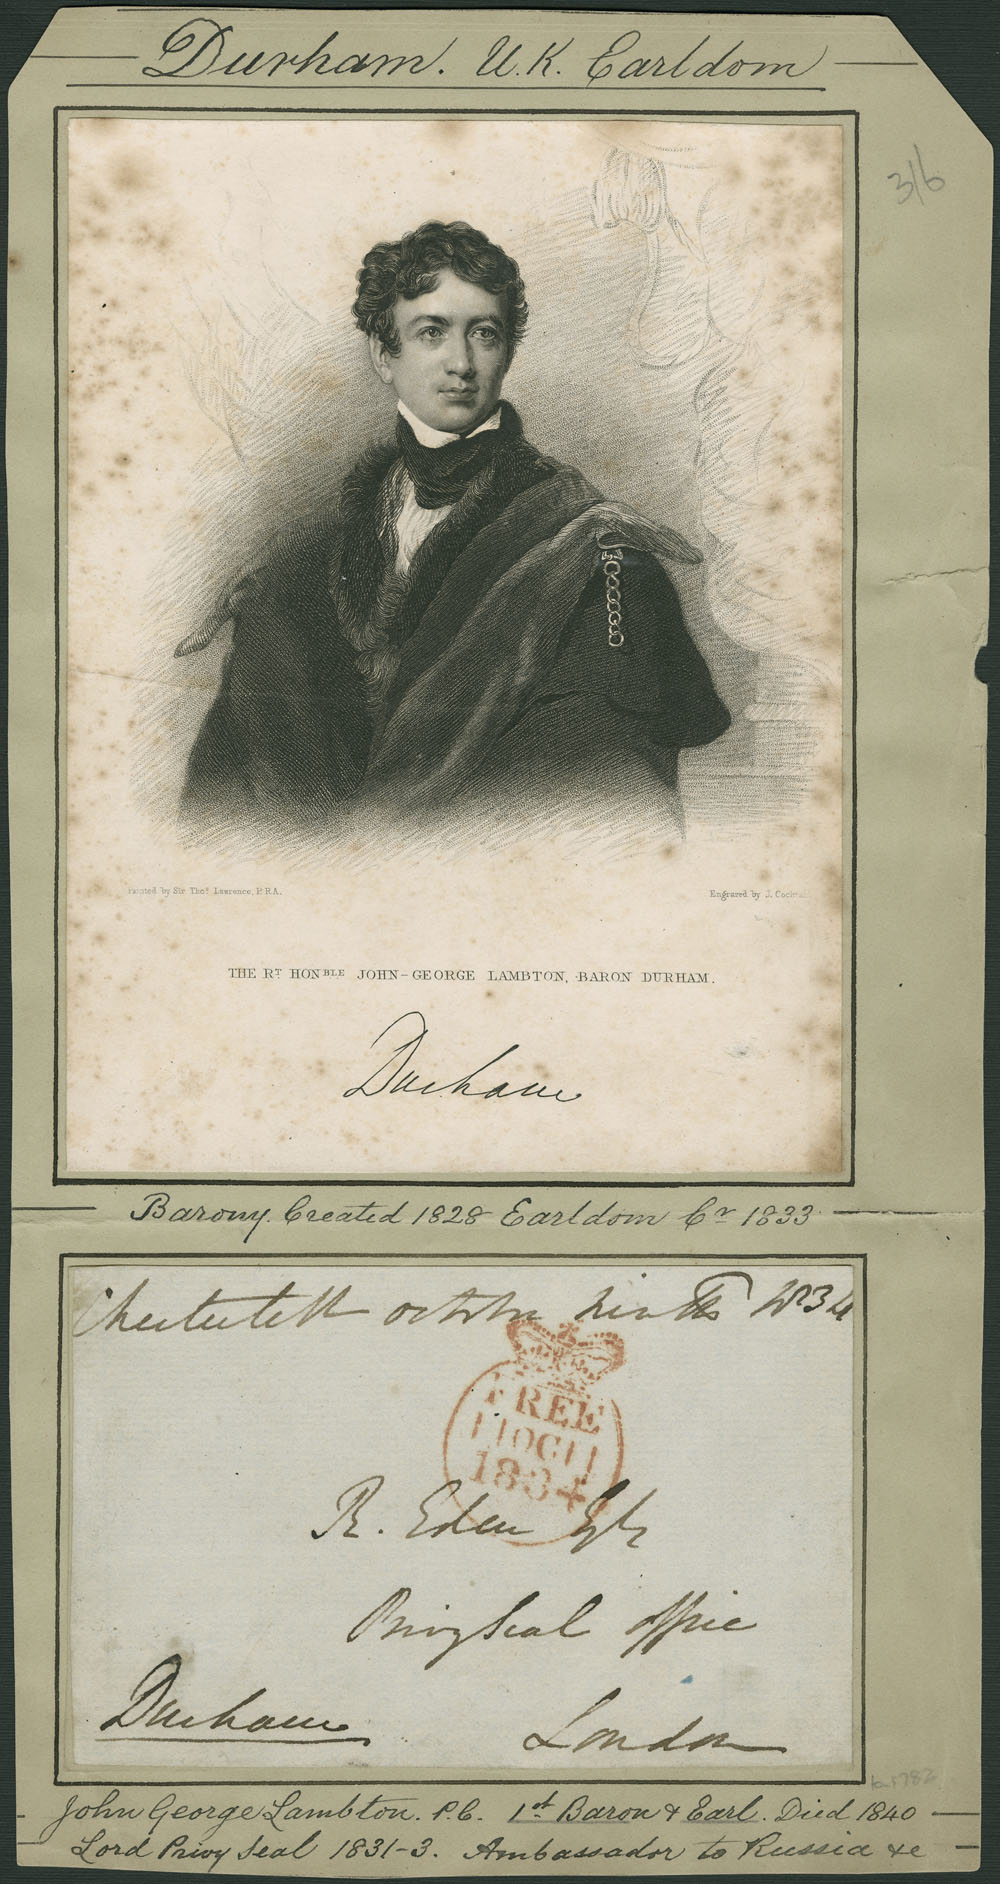 Durham. U.K. Earldom
3/6
Painted by Sir Thos. Lawrence, P.R.A.
Engraved by J. Cochran
THE RT HONBLE JOHN-GEORGE LAMBTON, BARON DURHAM.
Durham
Barony. Created 1828 Earldom Cr 1833
October Ninth 1834
FREE
11 OC 11
1834
R. Eden Esqr
Privy Seal Office
Durham
London
John George Lambton. P.C. 1st Baron & Earl. Died 1840
Lord Privy Seal 1831-3. Ambassador to Russia &c